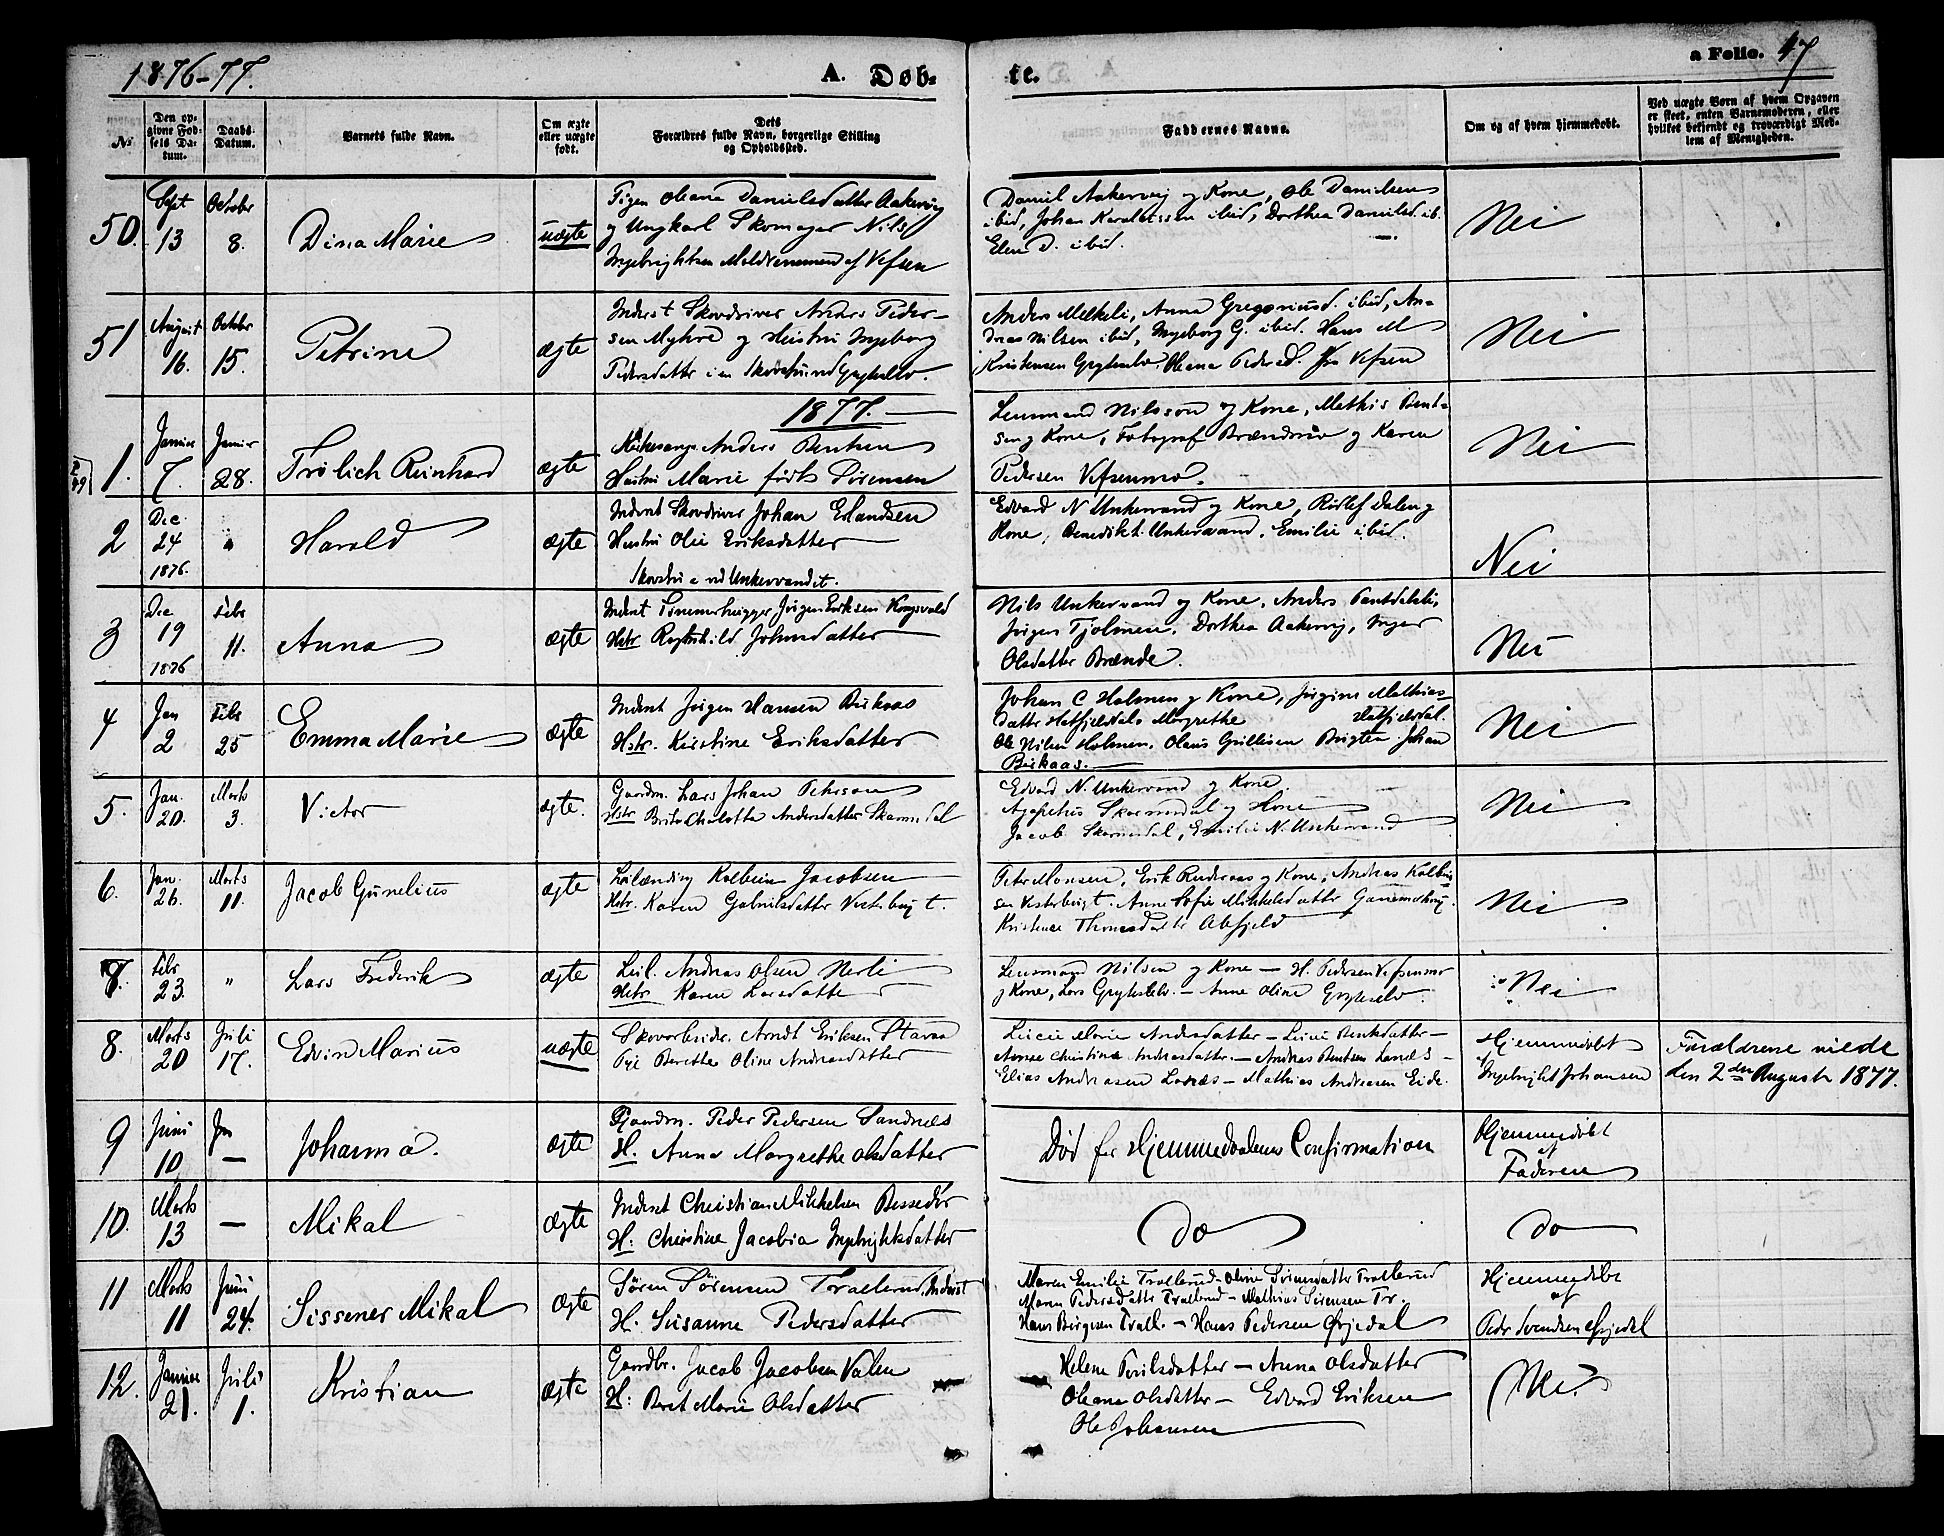 1876-77.
A. Døb-
te.
a Folio. 47
№
Den op-
givne Fød-
sels Da-
tum.
Daabs-
Datum.
Barnets fulde Navn.
Om ægte
eller uægte
født.
Dets
Forældres fulde Navn, borgerlige Stilling
og Opholdssted.
Faddernes Navne.
Om og af hvem hjemmedøbt.
Ved uægte Børn af hvem Opgaven
er skeet, enten Barnemoderen, eller
hvilket bekjendt og troværdigt Med-
lem af Menigheden.
50.
Sept
13
October
8.
Dina Marie
uægte
Pigen Oleana Danielsdatter Aakervig
og Ungkarl Skomager Nils
Ingebrigtsen af Vefsen
Daniel Aakervig og Kone, Ole Danielsen
ibid, Johan ibid, Dorthea Danielsd. ib.
Elen D. ibid.
Nei
51
August
16.
October
15.
Petrine
ægte
Inderst Skovdriver Anders Peder-
sen Myhre og Hustru Ingeborg
Pedersdatter i en Skovstue ved Grytselv.
Anders Mikkeli, Anna Gregoriusd. ibid, An-
dreas Nilsen ibid, Ingeborg G. ibid. Hans M
Kristensen Grytselv. Oleana Pedersd. fra Vefsen
Nei
1877.
1.
Januar
7.
Januar
28.
Frölich Reinhard
ægte
Kirkesanger Anders Bentsen
Hustru Marie født Sörensen
Lensmand Nilsson og Kone, Mathis Bent-
sen og Kone, Fotograf Brændmo og Karen
Pedersen Vefsenmo.
Nei
2
Dec.
24
1876.
"
Harald
ægte
Inderst Skovdriver Johan Erlandsen
Hustru Olie Eriksdatter
Skovstue ved Unkervandet.
Edvard N Unkervand og Kone, Rolef Dalen og
Kone, Benedikt Unkervand, Emilie ibid.
Nei
3
Dec
19
1876
Febr
11.
Anna
ægte
Inderst Tömmerhugger Jörgen Eriksen Kongsvold
Hstr Johnsdatter
Nils Unkervand og Kone, Anders
Jörgen Tjolmen, Dorthea Aakervig, Inger
Olsdatter Brænde.
Nei
4
Jan
2
Febr
25
Emma Marie
ægte
Inderst Jörgen Hansen Birkaas
Hstr. Kirstine Eriksdatter
Johan C Holmen og Kone, Jörgine Mathias-
datter Hatfjelddal. Margrethe Hatfjelddal.
Ole Nilsen Holmen. Olaus Johan
Birkaas.
Nei
5.
Jan.
20.
Marts
3.
Victor
ægte.
Gaardm. Lars Johan Pehrson
Hstr Brita Charlotta Andersdatter Skarmdal
Edvard N. Unkervand og Kone.
Agapetus Skarmodal og Kone
Jacob Skarmdal, Emilie N. Unkervand
Nei
6.
Jan.
26.
Marts
11.
Jacob Gunelius
ægte
Leilænding Kolbein Jacobsen
Hstr. Karen Gabrielsdatter Vesterbugt.
Peter Monsen, Erik og Kone, Andreas Kolbein-
sen Vesterbugt. Anne Sofie Mikkelsdatter
Kristence Thomasdatter
Nei
7.
Febr
23.
"
Lars Frederik
ægte
Leil. Andreas Olsen Nerli
Hstr Karen Larsdatter
Lensmand Nilsen og Kone — H. Pedersen Vefsenmo
og Kone, Lars Grytselv. — Anne Oline Grytselv.
Nei
8.
Marts
20
Juli
17.
Edvin Marius
uægte
Skovarbeider. Arndt Eriksen
Pige Berethe Oline Andreasdatter
Lucie Marie Andersdatter — Lucie Bentsdatter —
Anne Christine Andreasdatter. — Andreas Bentsen —
Elias Andreasen — Mathias Andreasen Eide.
Hjemmedøbt
af
Ingebrigt Johansen
Forældrene viede
den 2den August 1877.
9
Juni
10
Jun
—
Johanna.
ægte
Gaardm. Peder Pedersen Sandnes
H. Anna Margrethe Olsdatter
Död før Hjemmedaabens Confirmation
Hjemmedøbt
af
Faderen
10.
Marts
13
—
Mikal
ægte
Inderst Christian Mikkelsen Bessedör
H: Christine Jacobia Ingebrigtsdatter
do
do
11
Marts
11
Juni
24.
Sissener Mikal
ægte
Sören Sörensen Trallerud Inderst
H. Susanne Pedersdatter
Maren Emilie Trallerud — Oline Sörensdatter Trallerud
Maren Pedersdatter Trallerud — Mathias Sörensen Tr.
Hans Börgesen Trall. — Hans Pedersen
Hjemmedøbt
af
Peder Svendsen
12.
Januar
21.
Juli
1.
Kristian
ægte
Gaardbr. Jacob Jacobsen Valen
H: Beret Marie Olsdatter
Helene — Anna Olsdatter
Oleana Olsdatter — Edvard Eriksen
Ole Johansen
Nei